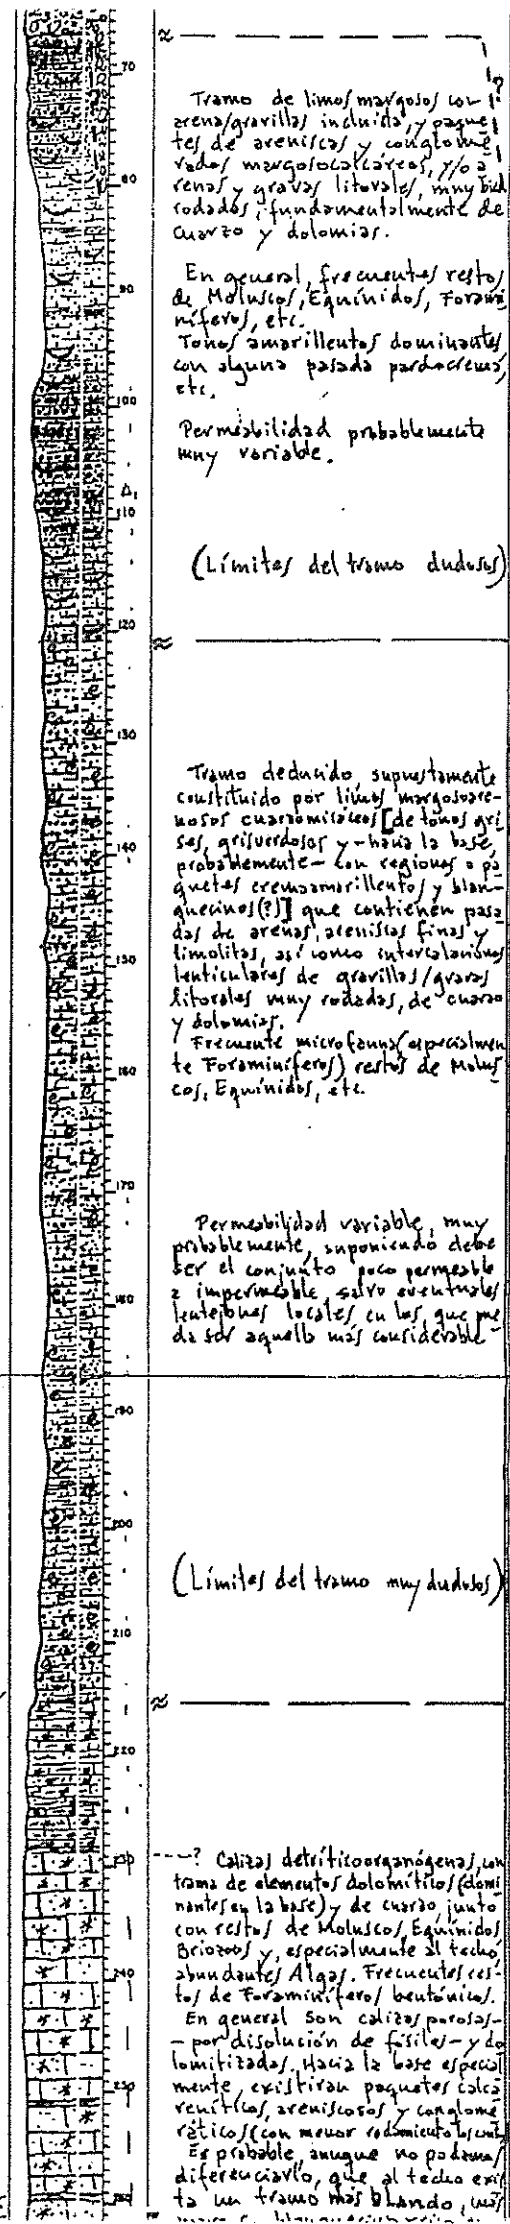 70
Tramo de limos margosos con
arenas/gravillas incluida, y paque
tes de areniscas y conglome
rados margosocalcáreos, y/o a
renas y gravas litorales, muy bien
rodados, fundamentalmente de
cuarzo y dolomias.
80
En general, frecuentes restos
de Moluscos, Equínidos, Forami
níferos, etc.
90
Tonos amarillentos dominantes
con alguna pasada pardocrema,
etc.
100
Permeabilidad probablemente
muy variable.
110
(Límites del tramo dudosos)
120
130
Tramo deducido supuestamente
constituido por limos margosoare-
nosos cuarzomicáceos [de tonos gri
ses, grisverdosos y - hacia la base,
probablemente - con regiones o pa
quetes cremaamarillentos y blan-
quecinos (?)] que contienen pasa
das de arenas, areniscas finas y
limolitas, así como intercalaciones
lenticulares de gravillas/gravas
litorales muy rodadas, de cuarzo
y dolomias.
140
150
Frecuente microfauna (especialmen
te Foraminíferos) restos de Molus
cos, Equínidos, etc.
160
170
Permeabilidad variable, muy
probablemente, suponiendo debe
ser el conjunto poco permeable
a impermeable, salvo eventuales
lentejones locales en los que pue
da ser aquella más considerable
180
190
200
(Límites del tramo muy dudosos)
210
220
230
----? Calizas detríticoorganógenas, con
trama de elementos dolomíticos (domi
nantes en la base) y de cuarzo, junto
con restos de Moluscos, Equínidos
Briozoos y, especialmente al techo,
abundantes Algas. Frecuentes res-
tos de Foraminíferos bentónicos.
240
En general son calizas porosas-
- por disolución de fósiles - y do
lomitizadas. Hacia la base especial
mente, existiran paquetes calca
reniticos, areniscosos y conglome
ráticos (con menor rodamiento
250
Es probable, aunque no podamos
diferenciarlo, que al techo exis
ta un tramo más blando, más
260